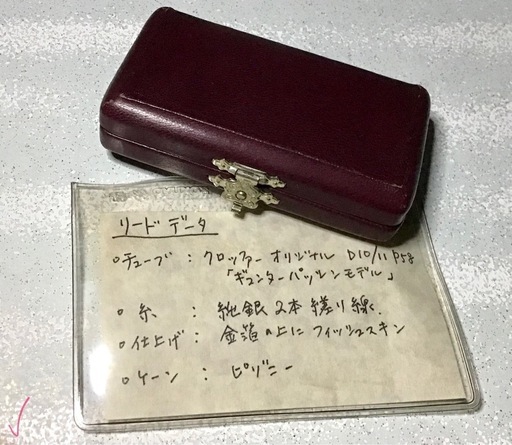 リードデータ
○チューブ : クロッファー オリジナル D10/11 P58
「ギュンターパッシンモデル」
○糸 : 純銀2本縒り線.
○仕上げ : 金箔の上にフィッシュスキン
○ケーン : ピゾニー